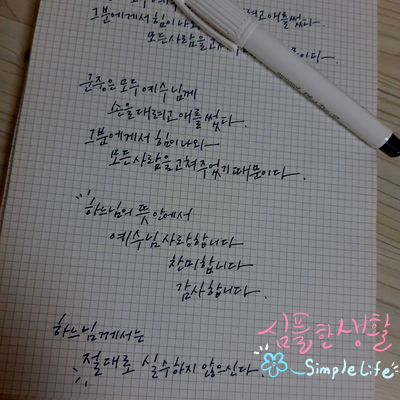 그분에게서 힘이 나와
모든 사람을 고쳐 주었기 때문이다.
군중은 모두 예수님께
손을 대려고 애를 썼다.
그분에게서 힘이 나와
모든 사람을 고쳐 주었기 때문이다.
하느님의 뜻 안에서
예수님 사랑합니다
찬미합니다
감사합니다.
하느님께서는
절대로 실수하지 않으신다.
심플한생활
Simple Life